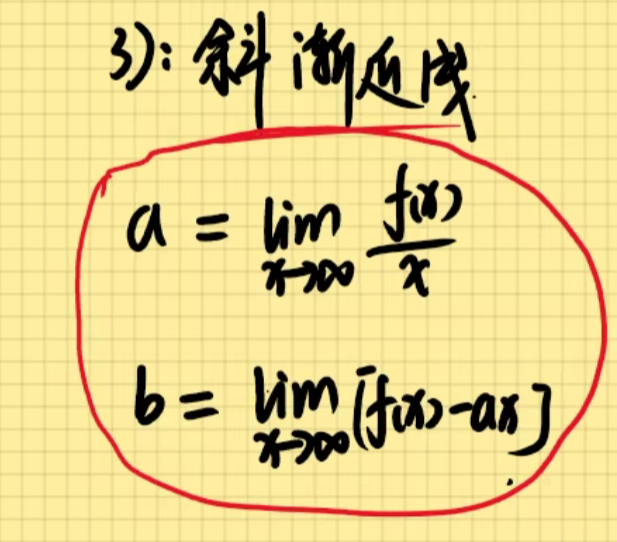 3): 斜渐近线
a = lim x→∞ f(x)/x
b = lim x→∞ [f(x)-ax]